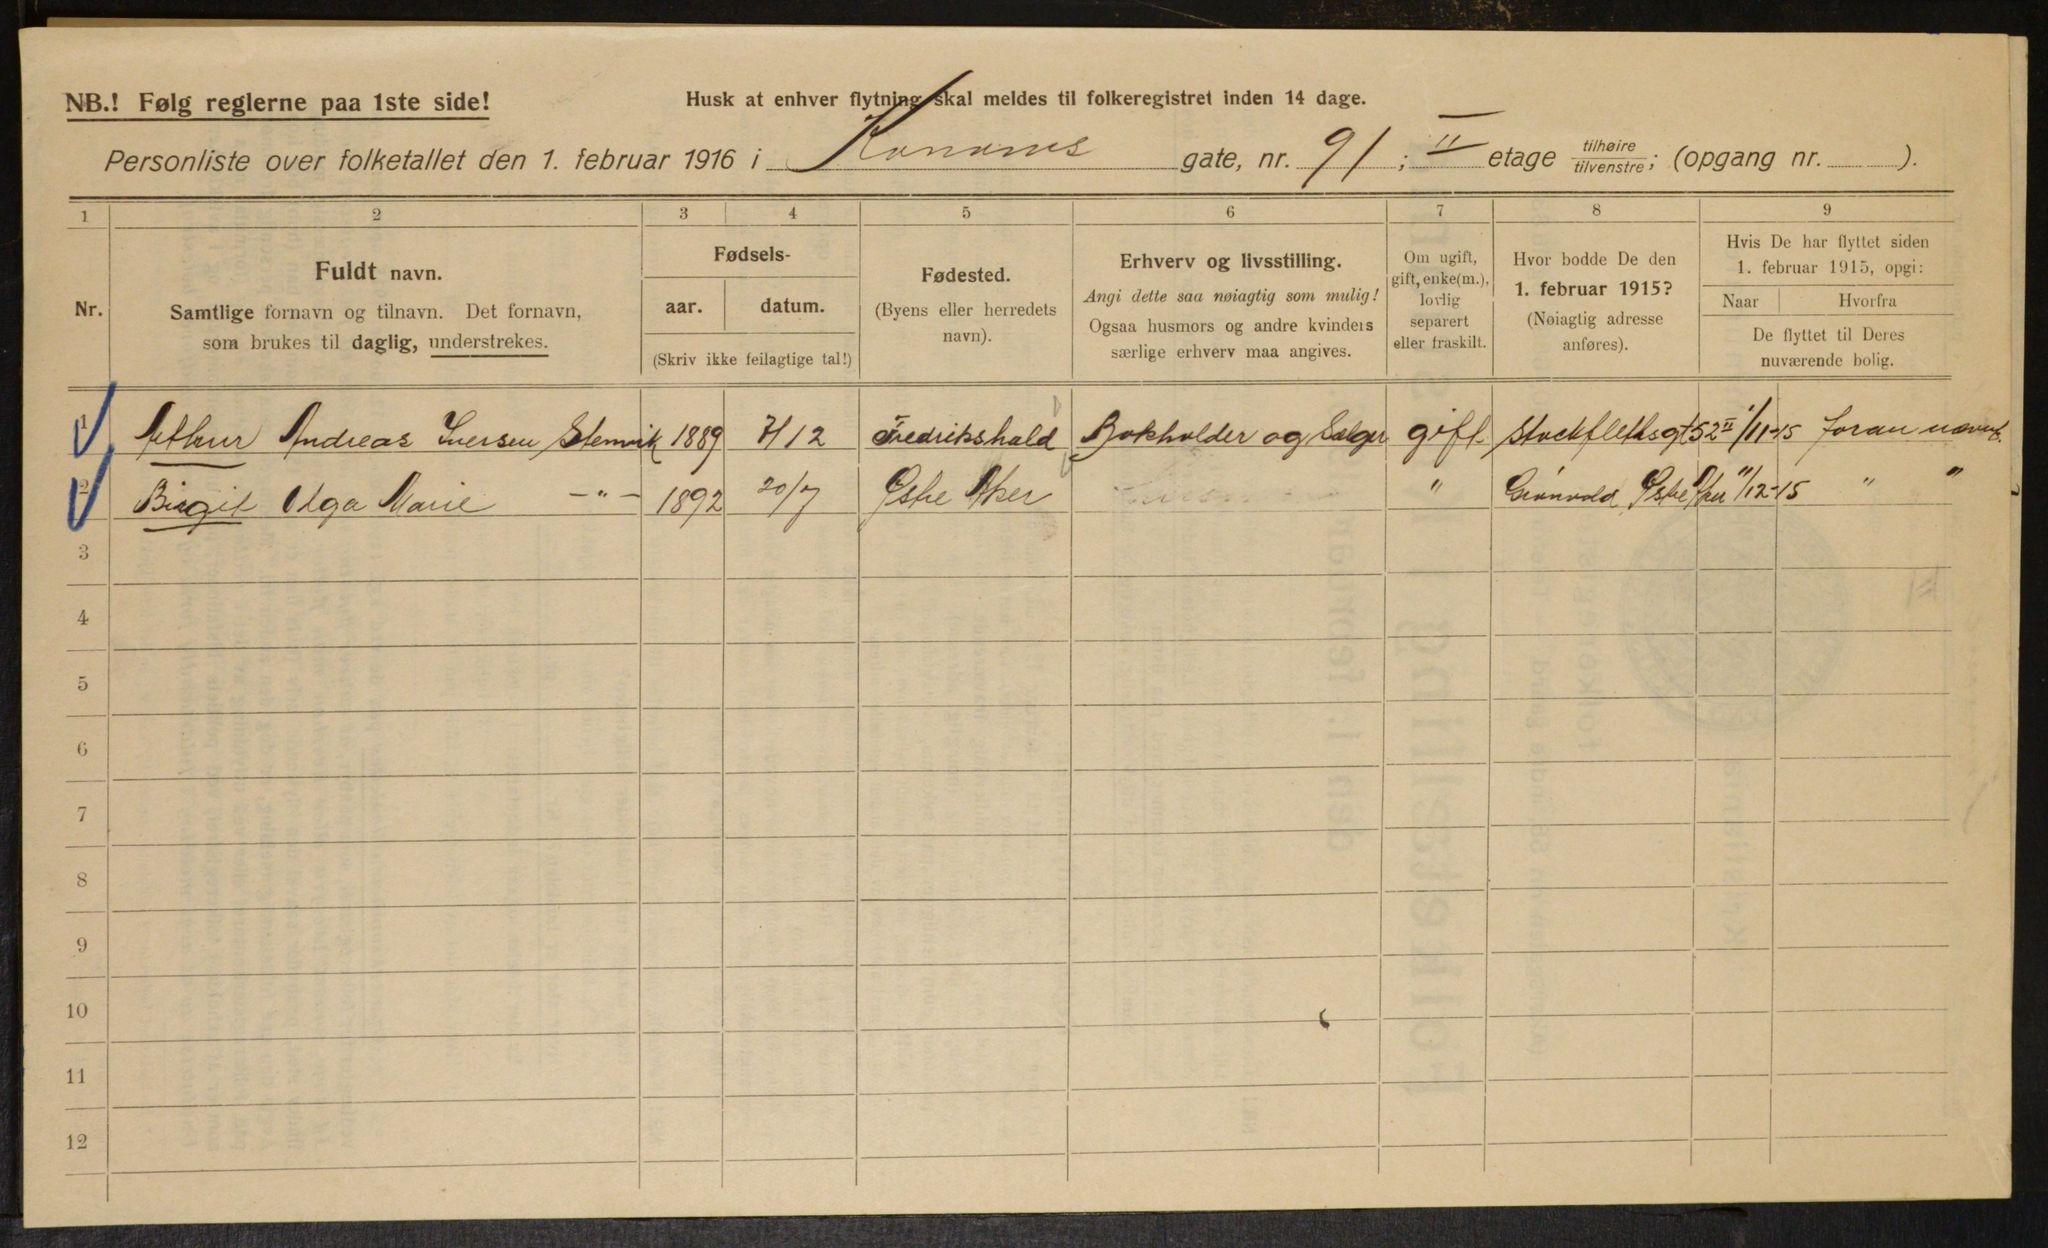 NB.! Følg reglerne paa 1ste side!
Husk at enhver flytning skal meldes til folkeregistret inden 14 dage.
Personliste over folketallet den 1. februar 1916 i Kanonens gate, nr. 91; II etage tilhøire tilvenstre; (opgang nr. ).
1 2 3 4 5 6 7 8 9
Nr.
Fuldt navn.
Samtlige fornavn og tilnavn. Det fornavn,
som brukes til daglig, understrekes.
Fødsels-
aar. datum.
(Skriv ikke feilagtige tal!)
Fødested.
(Byens eller herredets
navn).
Erhverv og livsstilling.
Angi dette saa nøiagtig som mulig!
Ogsaa husmors og andre kvinders
særlige erhverv maa angives.
Om ugift,
gift, enke(m.),
lovlig
separert
eller fraskilt.
Hvor bodde De den
1. februar 1915?
(Nøiagtig adresse
anføres).
Hvis De har flyttet siden
1. februar 1915, opgi:
Naar Hvorfra
De flyttet til Deres
nuværende bolig.
1 Arthur Andreas Iversen Stenvik 1889 7/12 Fredrikshald Bokholder og Sælger gift Stockflethsgt 52 II 1/11-15 foran nævnt.
2 Birgit Olga Marie -"- 1892 20/7 Østre Aker " Grønvold Østre Aker 1/12-15 " "
3
4
5
6
7
8
9
10
11
12